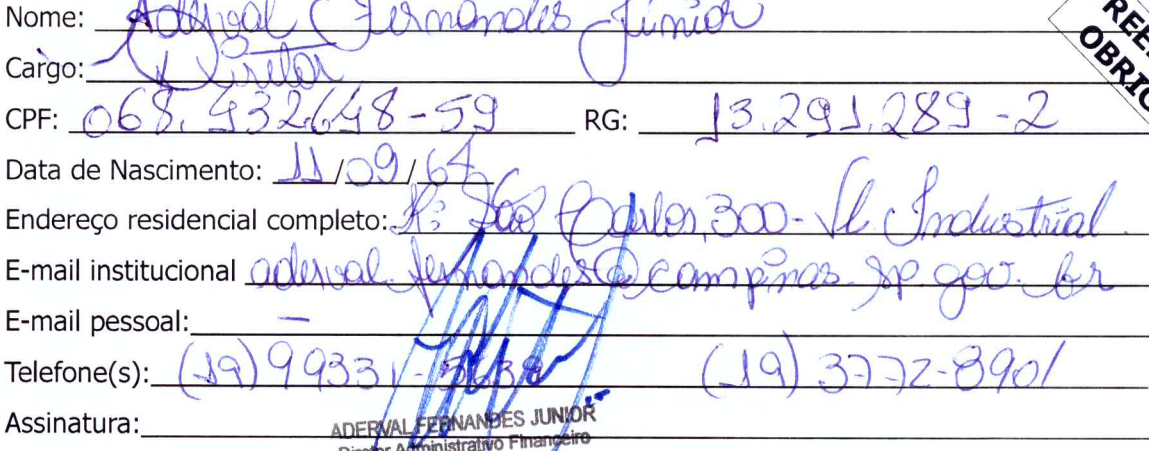 Nome: Aderval Fernandes Júnior
Cargo: Diretor
CPF: 068.932648-59 RG: 13.291.289-2
Data de Nascimento: 11/09/64
Endereço residencial completo: R: São Carlos, 300 - Vl. Industrial.
E-mail institucional aderval.fernandes@campinas.sp.gov.br
E-mail pessoal: —
Telefone(s): (19) 99331- (19) 3772-8901
Assinatura:
ADERVAL FERNANDES JUNIOR
Diretor Administrativo Financeiro